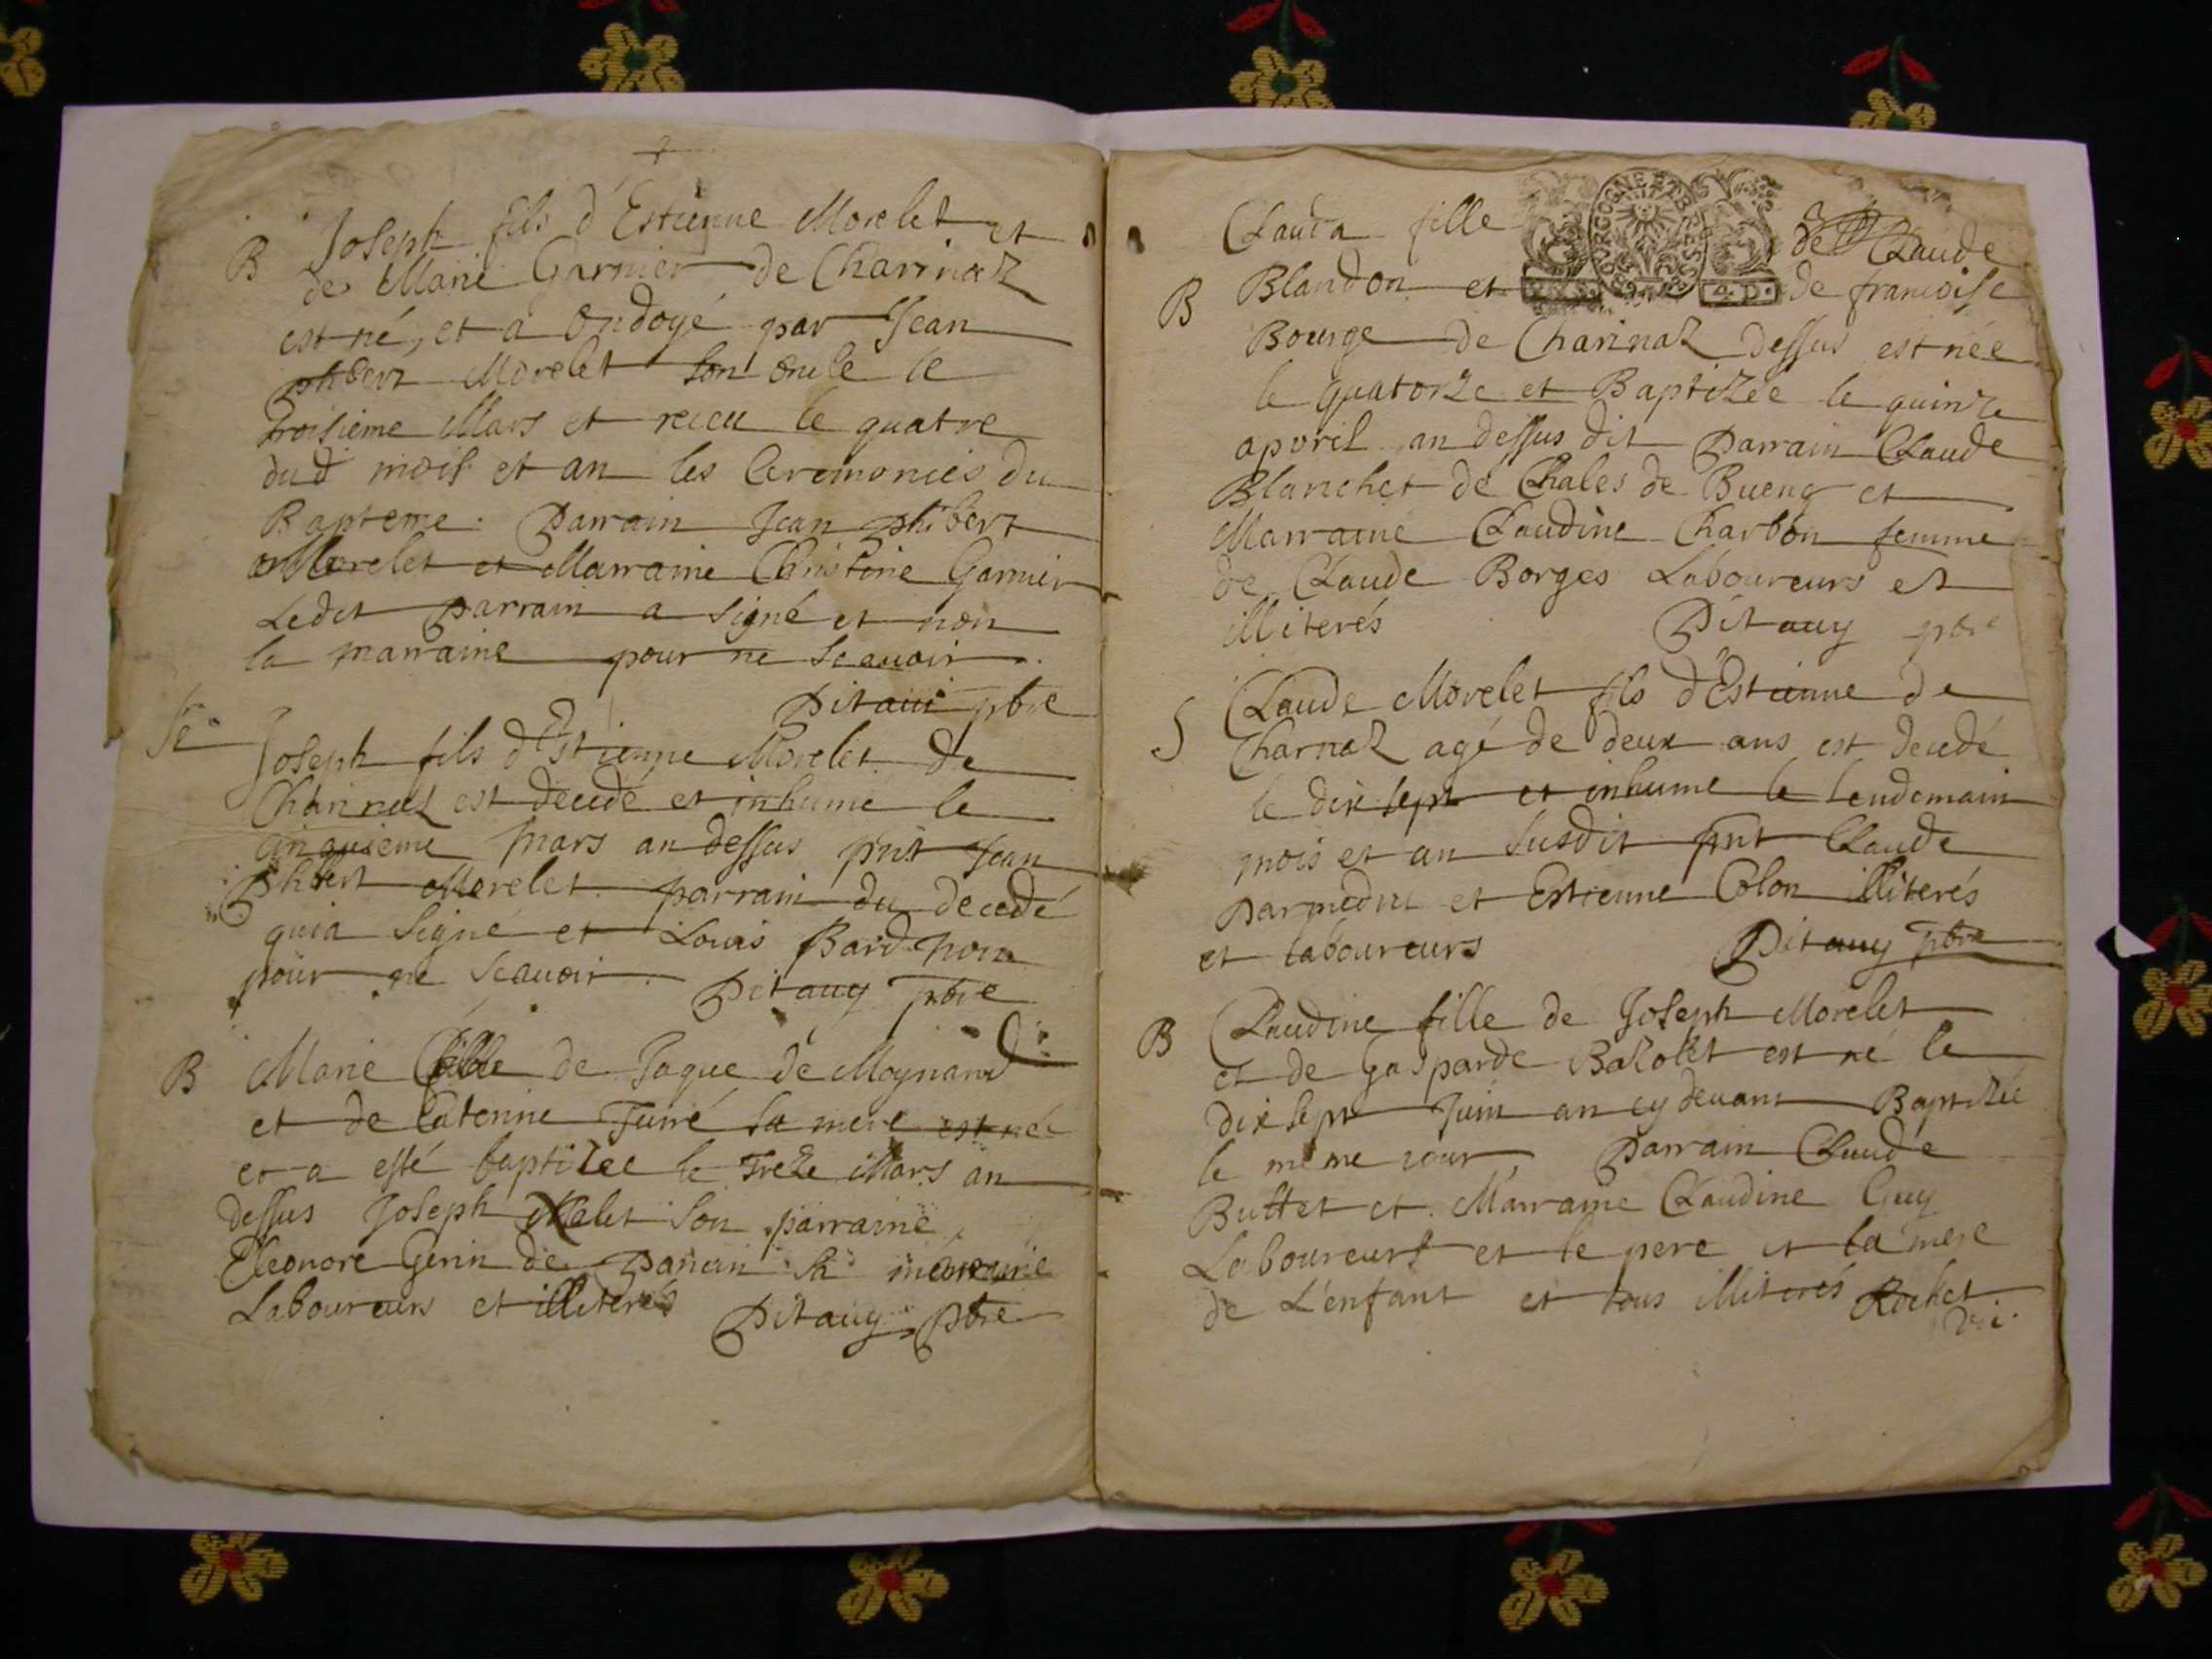 B Joseph fils d'Estienne Morelet et
de Marie Garnier de Charinaz
est né, et a ondoyé par Jean
phibert Morelet son oncle le
troisieme Mars et receu le quatre
dud mois et an les Ceremonies du
Bapteme. Parrain Jean phibert
Morelet et Marraine Christine Garnier
Ledit parrain a signé et non
la marraine pour ne scavoir.
Pitaui pbre
Se Joseph fils d'Estienne Morelet de
Charinaz est decedé et inhumé le
cinquieme mars an dessus pnt Jean
Phibert Morelet parrain du decedé
qui a signé et Louis Bard non
pour ne scavoir. Pitauy pbre
B Marie fille de Jaque de Moynand
et de Caterine sa mere est né
et a esté baptizee le treze Mars an
dessus Joseph son parraine
Eleonore Gerin de sa
Laboureurs et illiterés Pitauy Pbre
Clauda fille de Claude
BOURGOGNE ET BRESSE
4. D.
B Blandon et de francoise
Bourge de Charinaz dessus est née
le quatorze et Baptizée le quinze
apvril an dessus dit Parrain Claude
Blanchet de Chales de Bueng et
Marraine Claudine Charbon femme
de Claude Borges Laboureurs et
illiterés Pitauy pbre
S Claude Morelet fils d'Estienne de
Charnaz agé de deux ans est decedé
le dix sept et inhume le lendemain
mois et an susdit pnt Claude
et Estienne Colon illiterés
et laboureurs Pitauy pbre
B Claudine fille de Joseph Morelet
et de Gasparde est né le
dix sept Juin an cy devant Baptizée
le meme jour, Parrain Claude
Buttet et Marraine Claudine Guy
Laboureurs et le pere et la mere
de L'enfant et tous illiterés Rochet
vic.